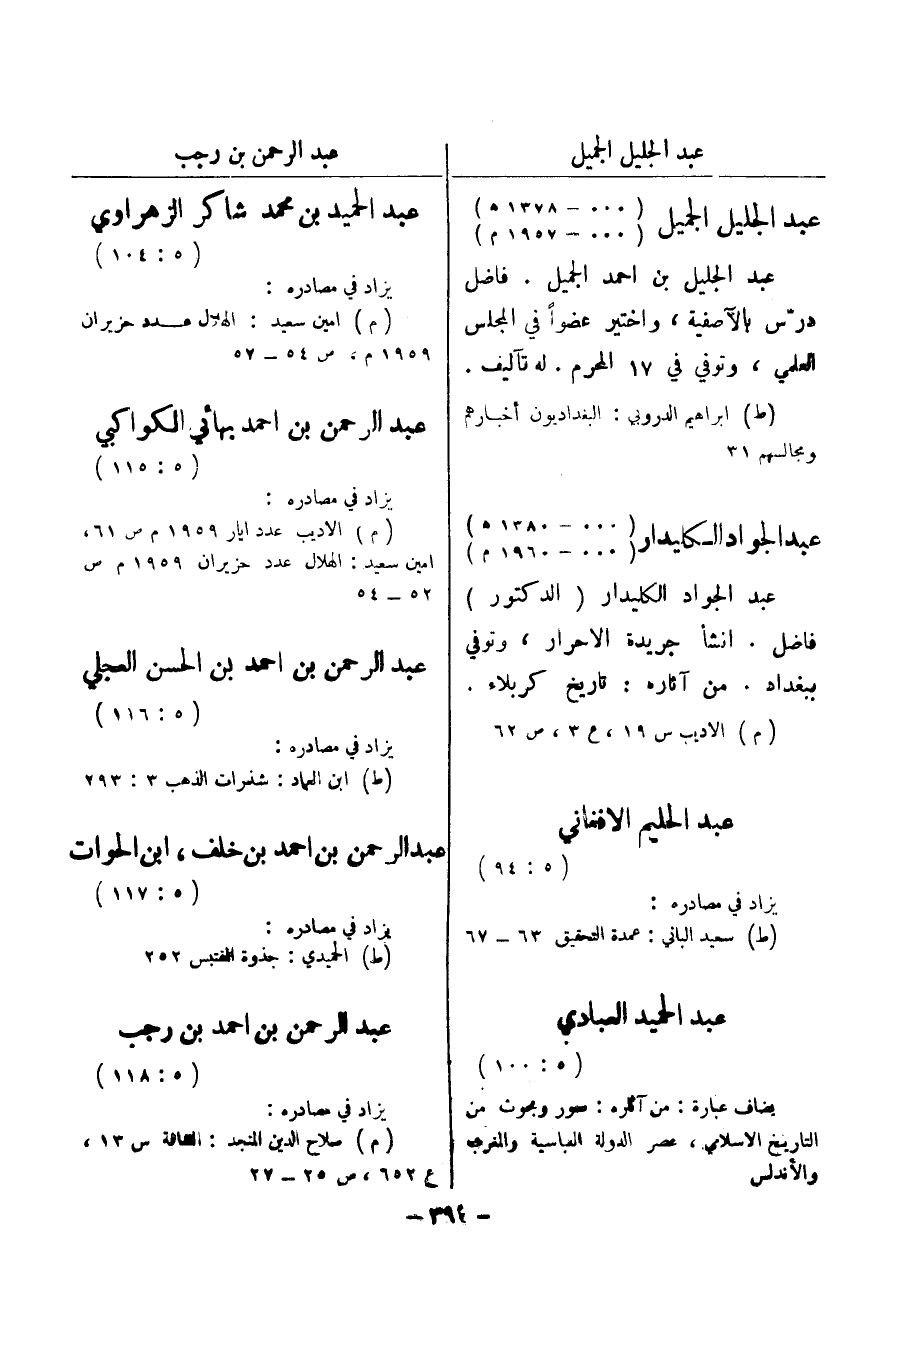 عبد الجليل الجميل
عبد الجليل الجميل ( ٠٠٠ – ١٣٧٨ ه )
( ٠٠٠ – ١٩٥٧ م )
عبد الجليل بن احمد الجميل . فاضل
درّس بالآصفية ، واختير عضواً في المجلس
العلمي ، وتوفي في ١٧ المحرم . له تآليف .
(ط) ابراهيم الدروبي : البغداديون أخبارهم
ومجالسهم ٣١
عبد الجواد الكليدار ( ٠٠٠ – ١٣٨٠ ه )
( ٠٠٠ – ١٩٦٠ م )
عبد الجواد الكليدار ( الدكتور )
فاضل . انشأ جريدة الاحرار ، وتوفي
ببغداد . من آثاره : تاريخ كربلاء .
( م ) الاديب س ١٩ ، ع ٣ ، ص ٦٢
عبد الحليم الافغاني
( ٥ : ٩٤ )
يزاد في مصادره :
(ط) سعيد الباني : عمدة التحقيق ٦٣ – ٦٧
عبد الحميد العبادي
( ٥ : ١٠٠ )
يضاف عبارة : من آثاره : صور وبحوث من
التاريخ الاسلامي ، عصر الدولة العباسية والمغرب
والأندلس
عبد الرحمن بن رجب
عبد الحميد بن محمد شاكر الزهراوي
( ٥ : ١٠٤ )
يزاد في مصادره :
( م ) امين سعيد : الهلال عدد حزيران
١٩٥٩ م ، ص ٥٤ – ٥٧
عبد الرحمن بن احمد بهائي الكواكبي
( ٥ : ١١٥ )
يزاد في مصادره :
( م ) الاديب عدد ايار ١٩٥٩ م ص ٦١ ،
امين سعيد : الهلال عدد حزيران ١٩٥٩ م ص
٥٢ – ٥٤
عبد الرحمن بن احمد بن الحسن العجلي
( ٥ : ١١٦ )
يزاد في مصادره :
(ط) ابن العماد : شذرات الذهب ٣ : ٢٩٣
عبد الرحمن بن احمد بن خلف ، ابن الحوات
( ٥ : ١١٧ )
يزاد في مصادره :
(ط) الحميدي : جذوة المقتبس ٢٥٢
عبد الرحمن بن احمد بن رجب
( ٥ : ١١٨ )
يزاد في مصادره :
( م ) صلاح الدين المنجد : الثقافة س ١٣ ،
ع ٦٥٢ ، ص ٢٥ – ٢٧
– ٣٩٤ –